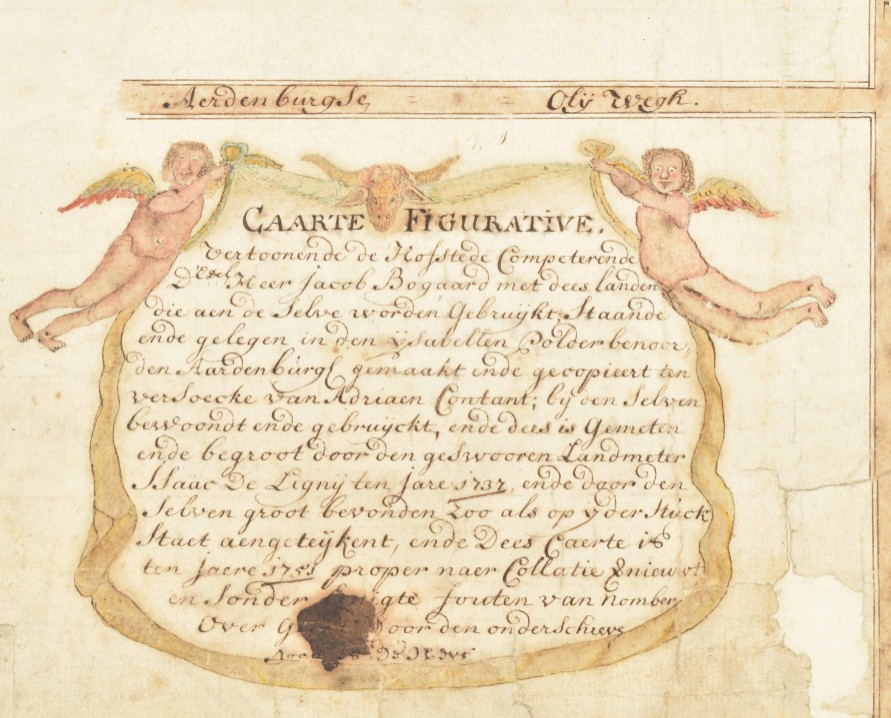 Aerdenburgse = = Olÿ Wegh.
CAARTE FIGURATIVE.
Vertoonende de Hofstede Competerende
D'Edel Heer Jacob Bogaard met dees landen
die aen de Selve worden Gebruijkt, Staande
ende gelegen in den ysabellen Polder benoor,
den Aardenburg gemaakt ende gecopieert ten
versoecke van Adriaen Contant; bij den Selven
bewoondt ende gebruijckt, ende dees is Gemeten
ende begroot door den geswooren Landmeter
Isaac De Lignij ten Jare 1737, ende door den
Selven groot bevonden Zoo als op yder Stuck
Staet aengeteijkent, ende Dees Caerte is
ten Jaere 1751 proper naer Collatie
en Sonder fouten van nomber
Over door den onderschreve
De